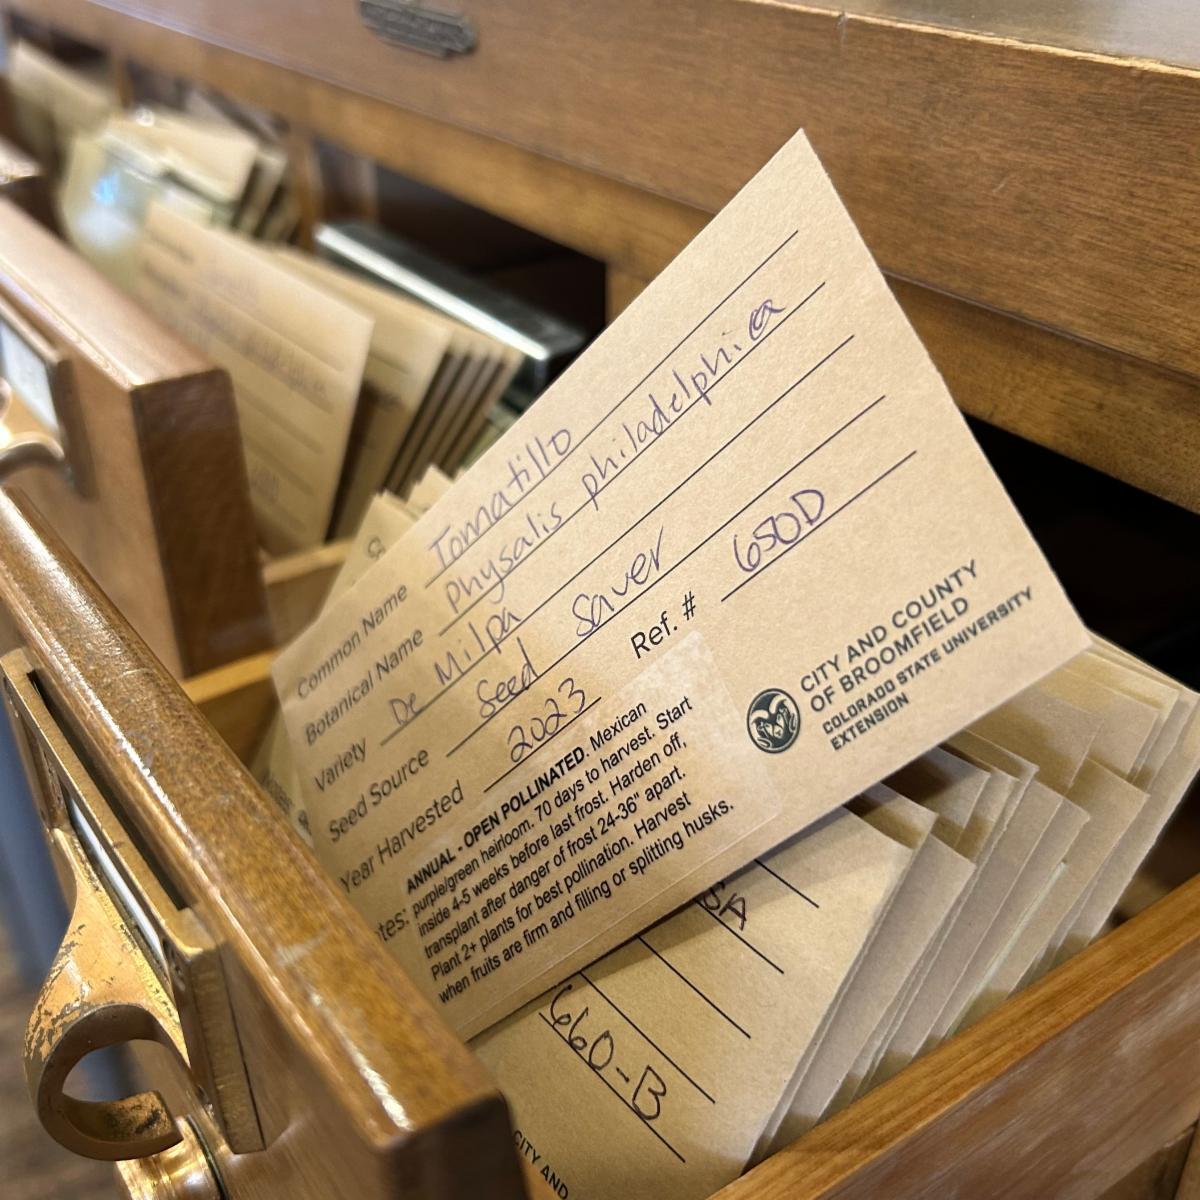 Common Name Tomatillo
Botanical Name physalis philadelphica
Variety De Milpa
Seed Source Seed Saver
Year Harvested 2023 Ref. # 650D
tes: ANNUAL - OPEN POLLINATED. Mexican
purple/green heirloom. 70 days to harvest. Start
inside 4-5 weeks before last frost. Harden off,
transplant after danger of frost 24-36" apart.
Plant 2+ plants for best pollination. Harvest
when fruits are firm and filling or splitting husks.
CITY AND COUNTY
OF BROOMFIELD
COLORADO STATE UNIVERSITY
EXTENSION
SA
660-B
CITY AND